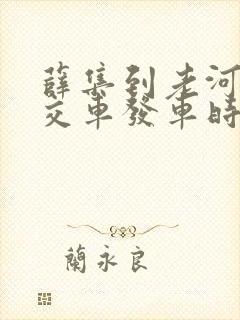 薛集到老河
交車發車時
蘭永良